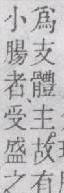 爲支體主故有
小腸者受盛之